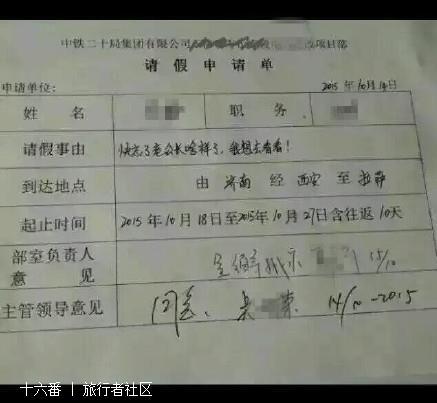 中铁二十局集团有限公司 项目部
请假申请单
申请单位： 2015年10月14日
姓名 职务
请假事由 快忘了老公长啥样了，我想去看看！
到达地点 由 济南 经 西安 至 拉萨
起止时间 2015年10月18日至2015年10月27日含往返10天
部室负责人意见 15/10
主管领导意见 同意 14/10-2015
十六番 | 旅行者社区